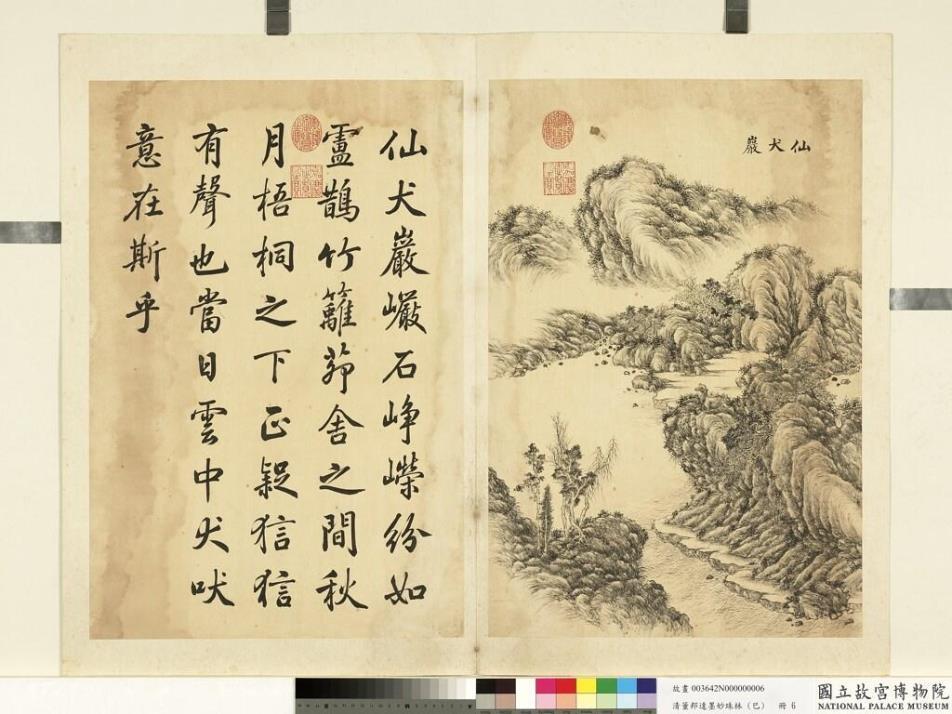 仙犬巖
仙犬巖巗石崢嶸紛如
盧鵲竹籬茆舍之間秋
月梧桐之下正疑狺狺
有聲也當日雲中犬吠
意在斯乎
故畫 003642N000000006
清董邦達墨妙珠林（巳） 冊 6
國立故宮博物院
NATIONAL PALACE MUSEUM